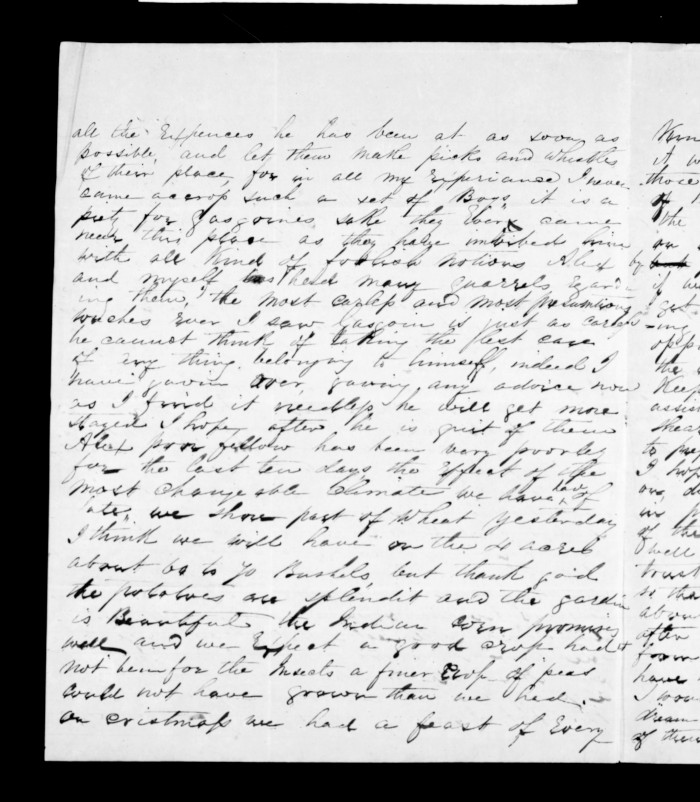 all the Expences he has been at as soon as
possible, and let them make picks and whistles
of their place, for in all my Experiance I never
came accrop such a set of Boys it is a
pity for Gasgoines sake they Ever came
near this place as they have imbibed him
with all kind of foolish notions Alex
and myself has held many quarrels regard
ing them, the most carlep and most presumtious
wretches Ever I saw Gasgoin is just as carlep
he cannot think of taking the lest care
of any thing belonging to himself, indeed I
have gavin over gaving any advice now
as I find it needlep he will get more
staged I hope after he is quit of them
Alex poor fellow has been very poorley
for the last ten days the Effect of the
most changeable climate we have had of
late, we shore part of wheat yesterday
I think we will have on the 4 acres
about 60 to 70 Bushels, but thank god
the potatoes are splendit and the garden
is Beautiful the Indian corn promises
well and we Expect a good crop had it
not been for the Insects a finer crop of peas
could not have grown than we had.
on cristmap we had a feast of Every
it w
those
of
the
in
by
it w
get
ing
opp
the
keep
assis
shea
to pay
I ho
our
we
of the
well
trust
so tha
abou
after
form
have
I wou
dream
of them